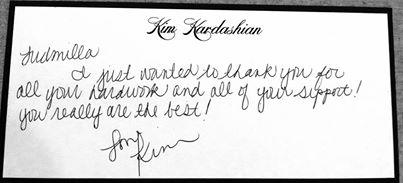 Kim Kardashian
Ludmilla
I just wanted to thank you for
all your hardwork and all of your support!
you really are the best!
Love
Kim